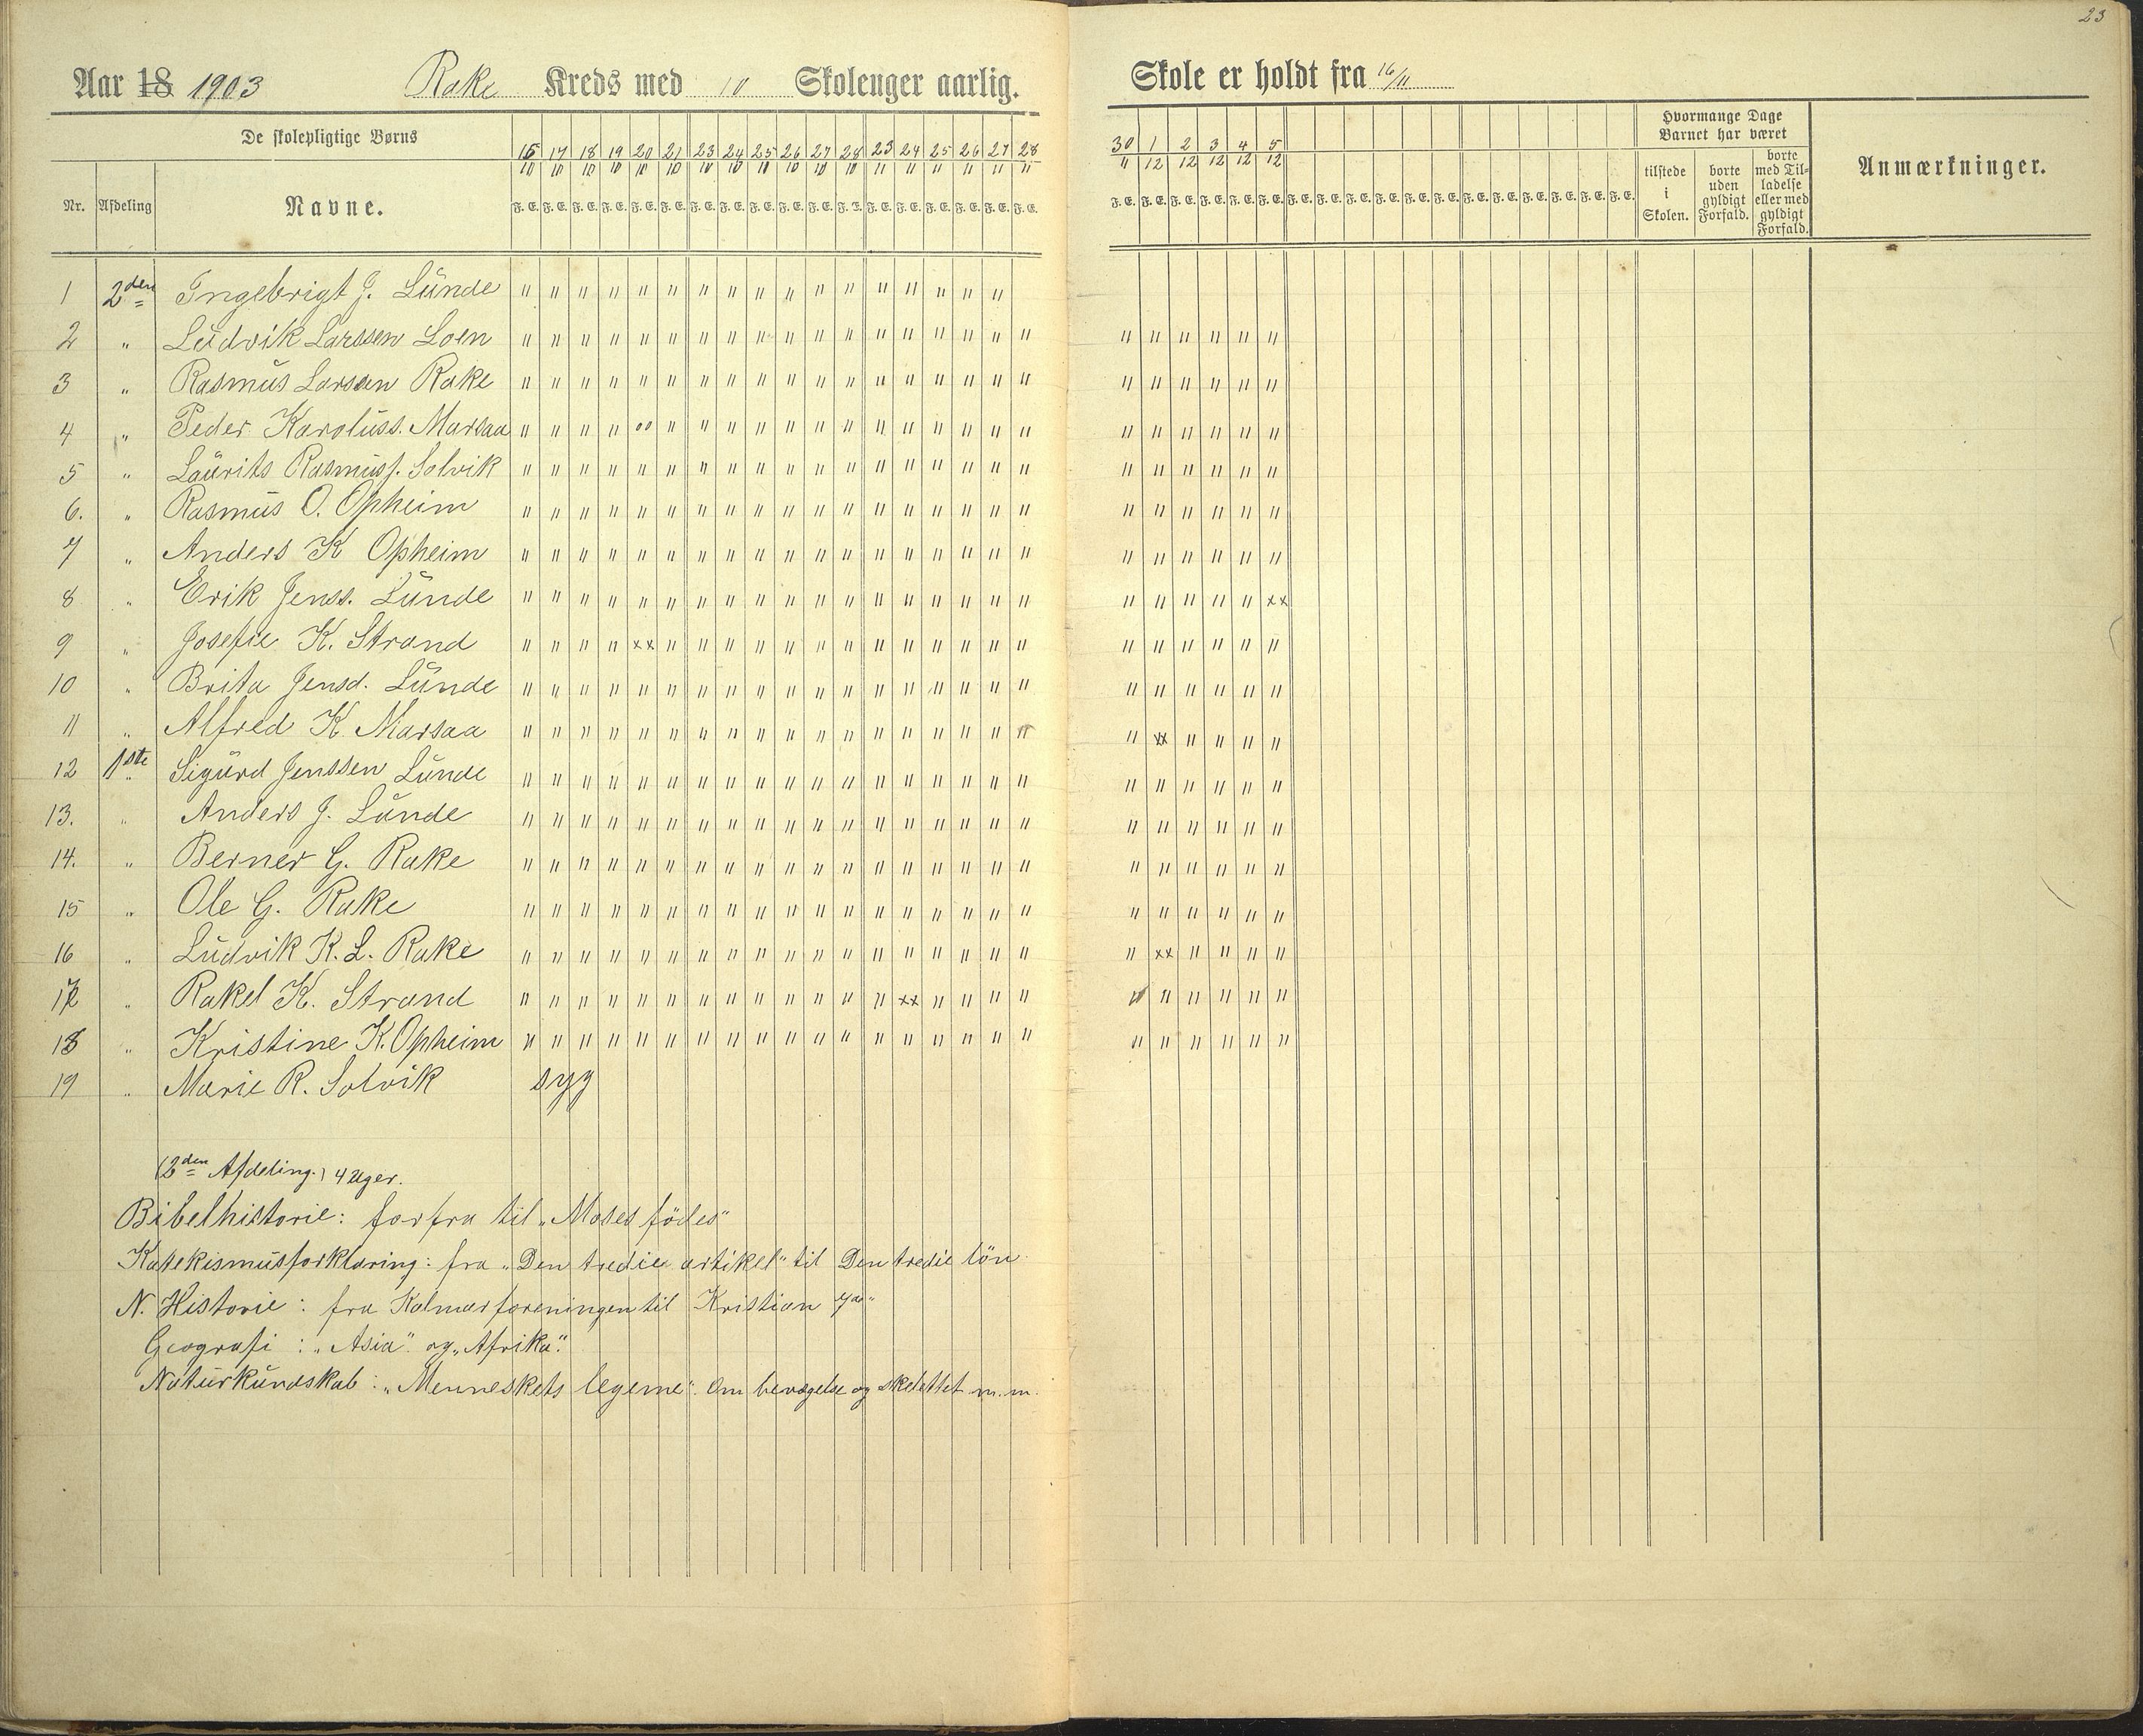 23
Aar 18 1903 Rake Kreds med 10 Skoleuger aarlig. Skole er holdt fra 16/11
De skolepligtige Børns
Nr. Afdeling Navne.
16 17 18 19 20 21 23 24 25 26 27 28 23 24 25 26 27 28 30 1 2 3 4 5
10 10 10 10 10 10 10 10 10 10 10 10 11 11 11 11 11 11 11 12 12 12 12 12
F. E. F. E. F. E. F. E. F. E. F. E. F. E. F. E. F. E. F. E. F. E. F. E. F. E. F. E. F. E. F. E. F. E. F. E.
F. E. F. E. F. E. F. E. F. E. F. E. F. E. F. E. F. E. F. E. F. E. F. E. F. E. F. E. F. E. F. E. F. E. F. E.
Hvormange Dage
Barnet har været
tilstede
i
Skolen.
borte
uden
gyldigt
Forfald.
borte
med Til-
ladelse
eller med
gyldigt
Forfald.
Anmærkninger.
1 2den Ingebrigt J. Lunde " " " " " " " " " " " " " " " " "
2 " Ludvik Larssen Loen " " " " " " " " " " " " " " " " " " " " " " " "
3 " Rasmus Larssen Rake " " " " " " " " " " " " " " " " " " " " " " " "
4 " Peder Karoluss. Marsaa " " " " oo " " " " " " " " " " " " " " " " " " "
5 " Laurits Rasmuss. Solvik " " " " " " " " " " " " " " " " " " " " " " " "
6. " Rasmus O. Opheim " " " " " " " " " " " " " " " " " " " " " " " "
7 " Anders K Opheim " " " " " " " " " " " " " " " " " " " " " " " "
8 " Erik Jenss. Lunde " " " " " " " " " " " " " " " " " " " " " " " xx
9 " Josefie K. Strand " " " " xx " " " " " " " " " " " " " " " " " " "
10 " Brita Jensd. Lunde " " " " " " " " " " " " " " " " " " " " " " " "
11 " Alfred K. Marsaa " " " " " " " " " " " " " " " " " " " xx " " " "
12 1ste Sigurd Jenssen Lunde " " " " " " " " " " " " " " " " " " " " " " " "
13. " Anders J. Lunde " " " " " " " " " " " " " " " " " " " " " " " "
14. " Berner G. Rake " " " " " " " " " " " " " " " " " " " " " " " "
15 " Ole G. Rake " " " " " " " " " " " " " " " " " " " " " " " "
16 " Ludvik K. L. Rake " " " " " " " " " " " " " " " " " " " xx " " " "
17 " Rakel K. Strand " " " " " " " " " " " " " xx " " " " " " " " " "
18 " Kristine K. Opheim " " " " " " " " " " " " " " " " " " " " " " " "
19 " Marie R. Solvik syg
(2den Afdeling.) 4 Uger.
Bibelhistorie: forfra til „Moses födes"
Katekismusforklaring: fra „Den tredie artikel" til Den tredie bön.
N. Historie: fra Kalmarforeningen til Kristian 7de"
Geografi: „Asia" og „Afrika".
Naturkundskab: „Menneskets legeme". Om bevægelse og skelettet m.m.